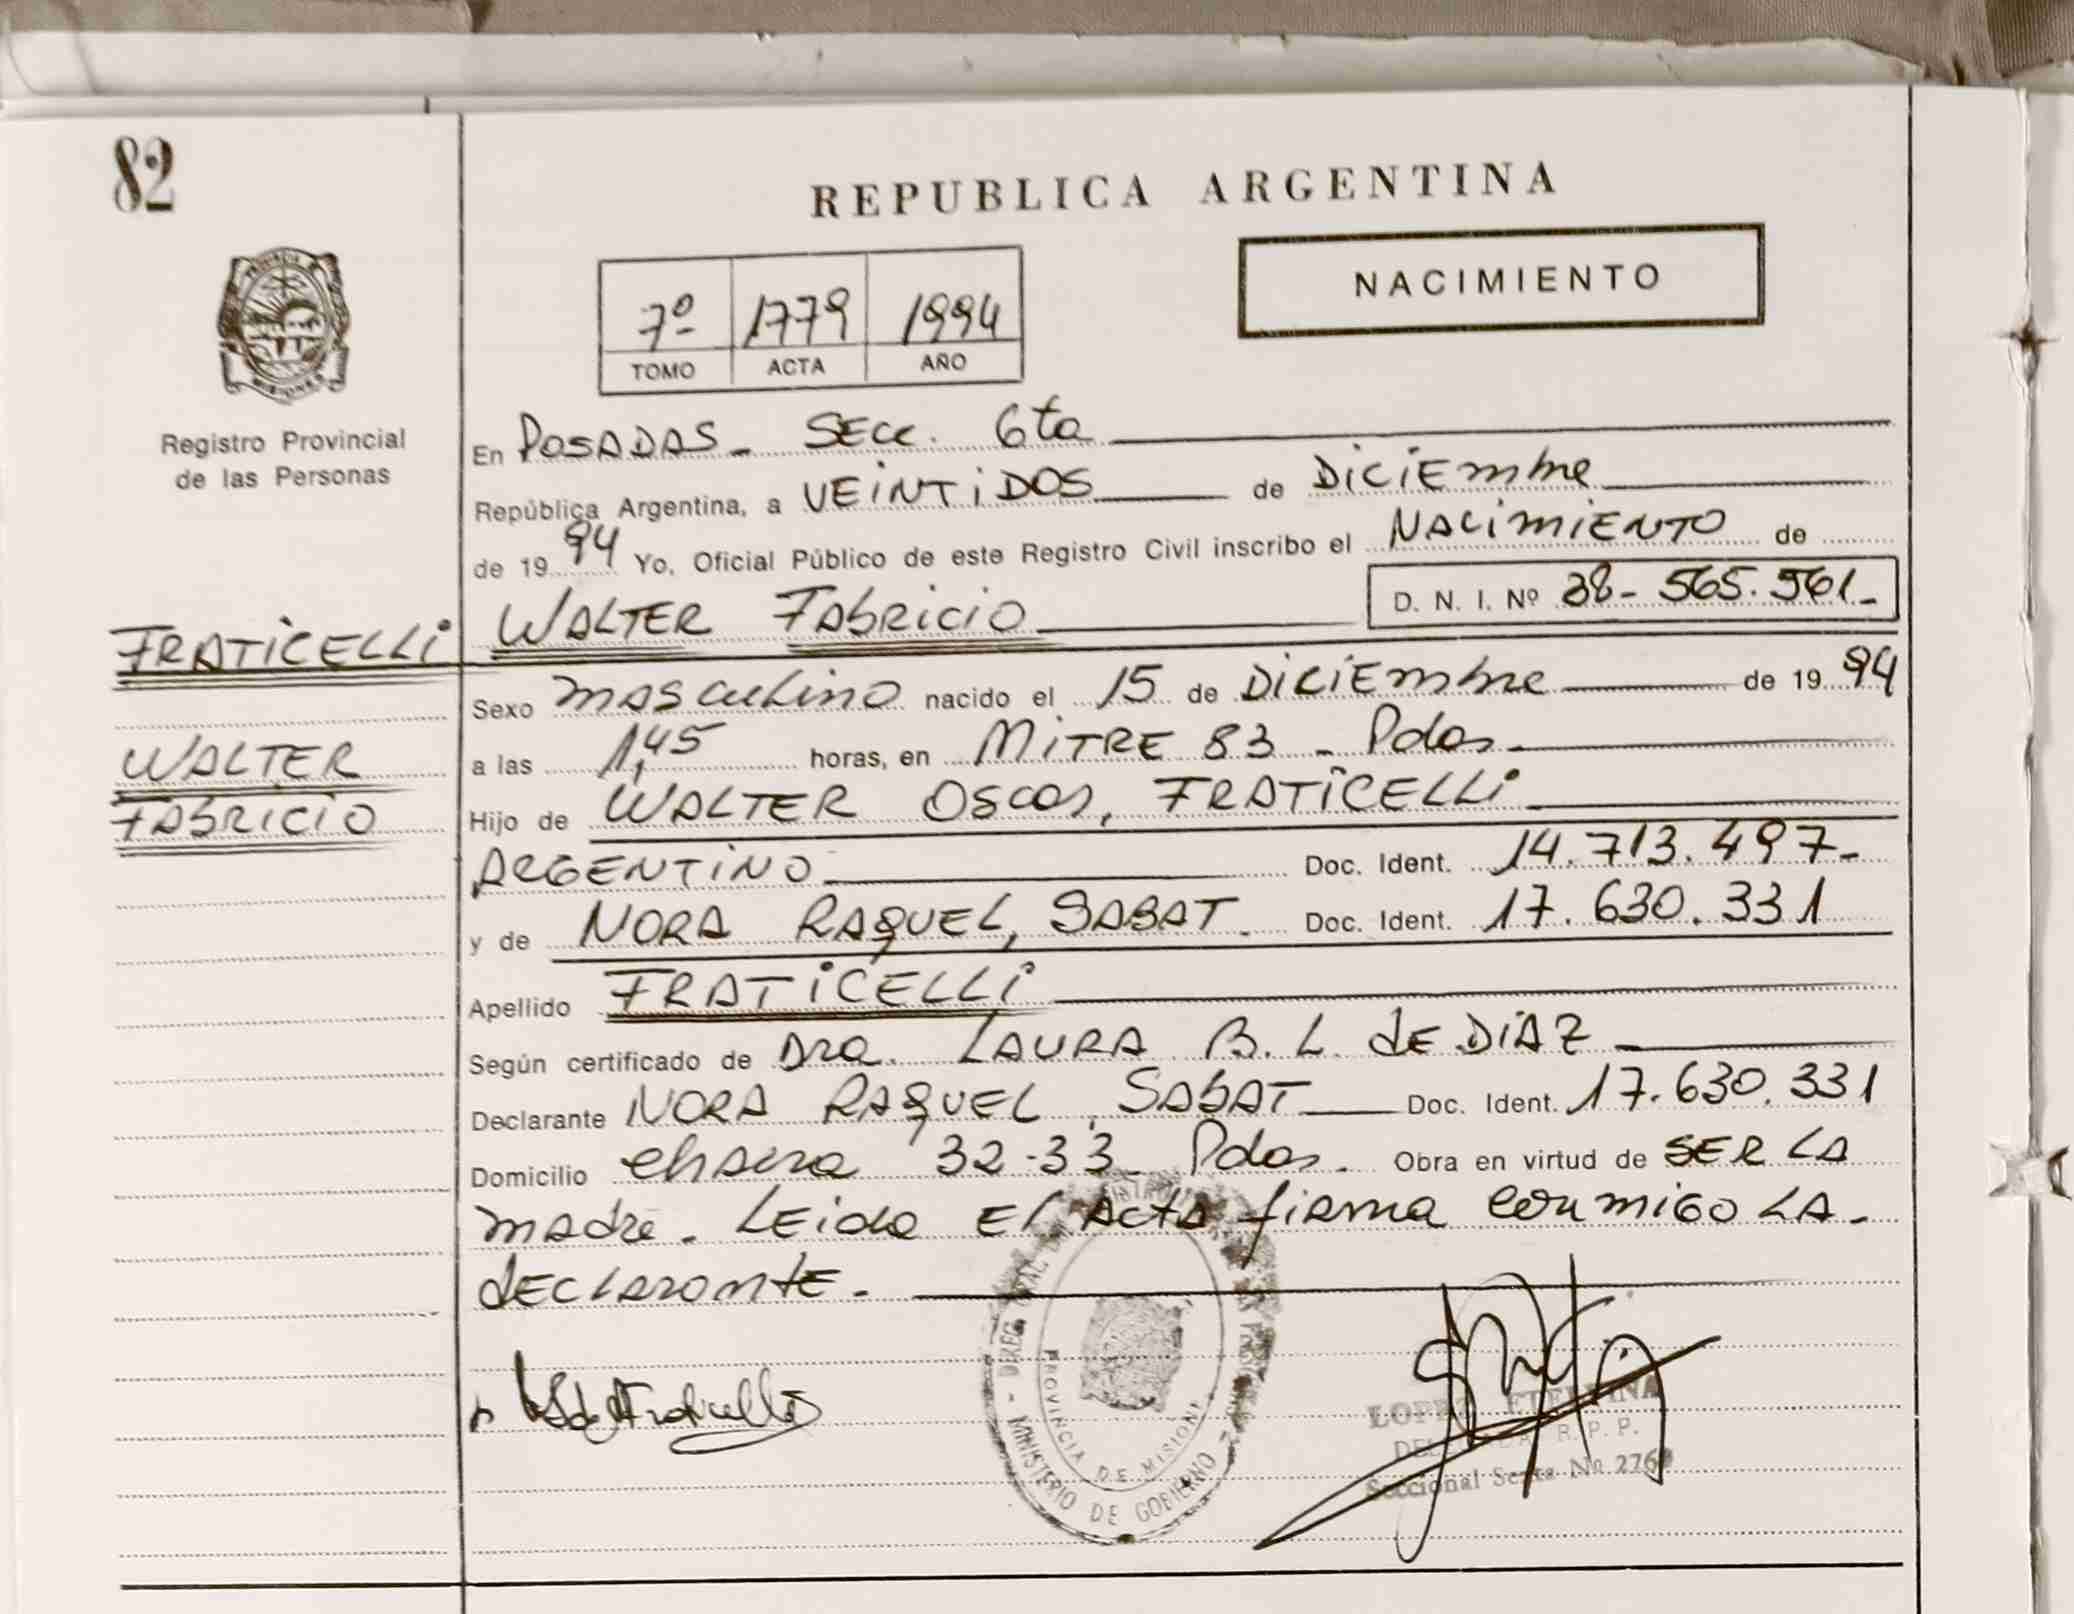 82
REPUBLICA ARGENTINA
NACIMIENTO
7º 1779 1994
TOMO ACTA AÑO
Registro Provincial
de las Personas
En POSADAS - SECC. 6ta
República Argentina, a VEINTIDOS de DICIEMBRE
de 1994 Yo, Oficial Público de este Registro Civil inscribo el NACIMIENTO de
D. N. I. Nº 38-565.561-
FRATICELLI WALTER FABRICIO
Sexo masculino nacido el 15 de DICIEMBRE de 1994
WALTER
FABRICIO
a las 1,45 horas, en MITRE 83 - Pdas -
Hijo de WALTER OSCAR, FRATICELLI
ARGENTINO Doc. Ident. 14.713.497-
y de NORA RAQUEL, SABAT. Doc. Ident. 17.630.331
Apellido FRATICELLI
Según certificado de Dra. LAURA B. L. de DIAZ
Declarante NORA RAQUEL, SABAT Doc. Ident. 17.630.331
Domicilio 32-33 Pdas. Obra en virtud de SER LA
madre. Leida El Acta firma conmigo LA -
declarante.
MINISTERIO DE GOBIERNO
PROVINCIA DE MISIONES
R. P. P.
Seccional Sexta Nº